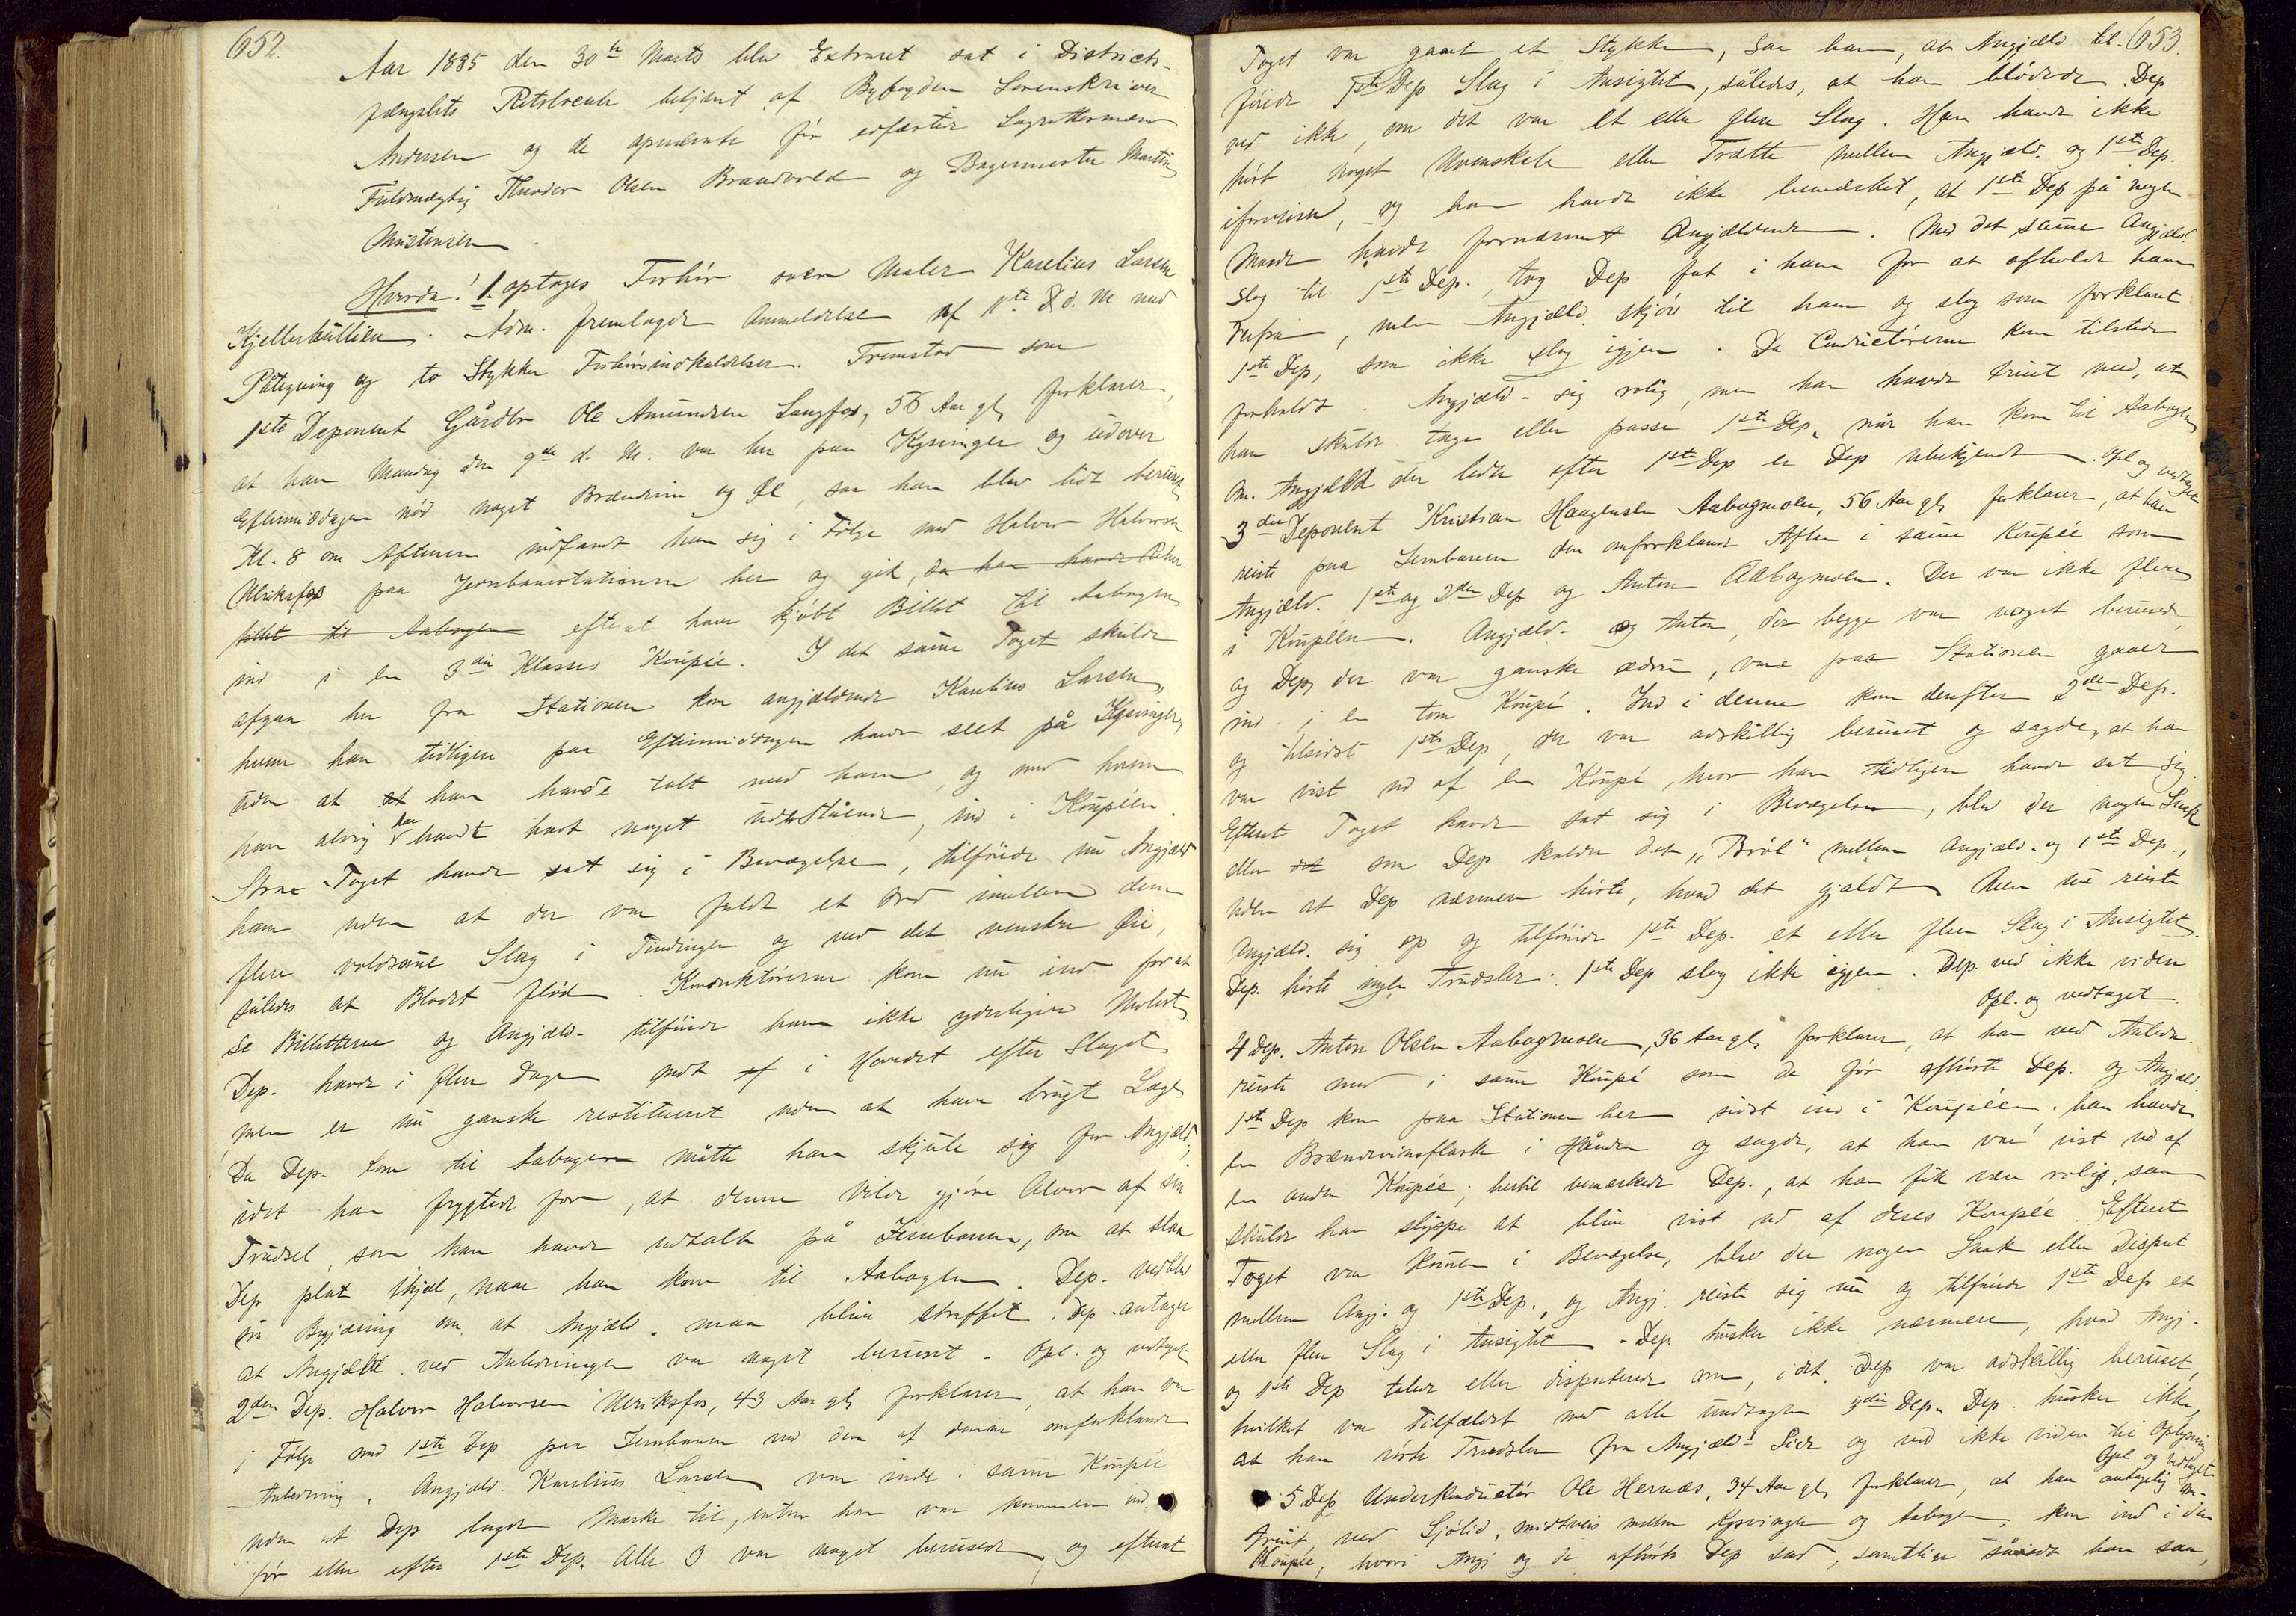 652.
Aar 1885 den 30te Marts blev Extraret sat i Districts-
fængslets Retslocale betjent af Byfogden Sorenskriver
Andersen og de opnævnte før edfæstede Lagrettesmænd
Fuldmægtig Theodor Olsen Brandvold og Bagermester Martin
Christensen
Hvorda! 1. optoges Forhør over Maler Karelius Larsen
Kjellerhaugen. Adm. fremlagde Anmeldelse af 11te d. M. med
Påtegning og to Stykker Forhørsindkaldelser. Fremstod som
1ste Deponent Gårdbr Ole Amundsen Langfos, 56 Aar gl, forklarer,
at han Mandag den 9de d. M. var her paa Kgsvinger og udover
Eftermiddagen nød noget Brændevin og Øl, saa han blev lidt beruset
Kl. 8 om Aftenen indfandt han sig i Følge med Halvor Halvorsen
Ulriksfos paa Jernbanestationen her og gik, da han havde Retur
billet til Aabogen efterat have kjøbt Billet til Aabogen
ind i en 3die Klasses Koupée. I det samme Toget skulde
afgaa her fra Stationen kom angjældende Karelius Larsen,
hvem han tidligere paa Eftermiddagen havde seet på Kgsvinger,
uden at han havde talt med ham, og med hvem
han aldrig har havt noget udestående, ind i Koupéen.
Strax Toget havde sat sig i Bevægelse, tilføiede nu Angjæld
ham uden at der var faldt et Ord imellem dem
flere voldsomme Slag i Tindingen og ved det venstre Øie,
således at Blodet flød. Konduktørerne kom nu ind for at
se Billetterne og Angjæld. tilføiede ham ikke yderligere Molest.
Dep. havde i flere Dage ondt af i Hovedet efter Slaget
men er nu ganske restitueret uden at have brugt Læge
Da Dep. kom til Aabogen måtte han skjule sig for Angjæld;
idet han frygtede for, at denne vilde gjøre Alvor af sin
Trudsel, som han havde udtalt på Jernbanen, om at slaa
Dep plat ihjel, naar han kom til Aabogen. Dep. vedblev
sin Begjæring om, at Angjæld. maa blive straffet. Dep. antager
at Angjæld. ved Anledningen var noget beruset. Opl. og vedtaget.
2den Dep. Halvor Halvorsen Ulriksfos, 43 Aar gl, forklarer, at han var
i Følge med 1ste Dep paa Jernbanen ved den af denne omforklarede
Anledning. Angjæld. Karelius Larsen var inde i samme Koupée
uden at Dep lagde Mærke til, enten han var kommen ind
før eller efter 1ste Dep. Alle 3 var noget berusede, og efterat
653.
Toget var gaaet et Stykke, saa han, at Angjæld til-
føiede 1ste Dep Slag i Ansigtet, således, at han blødede. Dep
ved ikke, om det var et eller flere Slag. Han havde ikke
hørt noget Uvenskab eller Trætte mellem Angjæld. og 1ste Dep.
iforveien, og han havde ikke bemærket, at 1ste Dep på nogen
Maade havde fornærmet Angjældende. Med det samme Angjæld
slog til 1ste Dep., tog Dep fat i ham for at afholde ham
derfra, men Angjæld. skjøv til ham og slog som forklaret
1ste Dep, som ikke slog igjen. Da Conductørerne kom tilstede
forholdt Angjæld. sig rolig, men han havde truet med, at
han skulde tage eller passe 1ste Dep, når han kom til Aabogen
Om Angjæld der ledte efter 1ste Dep er Dep ubekjendt. Opl og vedtaget
3die Deponent Kristian Haagensen Aabogmoen, 56 Aar gl, forklarer, at han
reiste paa Jernbanen den omforklarede Aften i samme Koupée som
Angjæld. 1ste og 2den Dep og Anton Aabogmoen. Der var ikke flere
i Koupéen. Angjæld. og Anton, der begge var noget berusede,
og Dep, der var ganske ædru, vare paa Stationen gaaede
ind i en tom Koupé. Ind i denne kom derefter 2den Dep.
og tilsidst 1ste Dep, der var adskillig beruset og sagde, at han
var vist ud af en Koupé, hvor han tidligere havde sat sig.
Efterat Toget havde sat sig i Bevægelse, blev der nogen Snak
eller som Dep kaldte det „Brøl“ mellem Angjæld. og 1ste Dep.,
uden at Dep nærmere hørte, hvad det gjaldt. Men nu reiste
Angjæld. sig op og tilføiede 1ste Dep. et eller flere Slag i Ansigtet.
Dep. hørte ingen Trudsler. 1ste Dep slog ikke igjen. Dep. ved ikke viden
Opl. og vedtaget.
4 Dep. Anton Olsen Aabogmoen, 36 Aar gl, forklarer, at han ved Anledn.
reiste med i samme Koupé som de før afhørte Dep. og Angjæld.
1ste Dep kom paa Stationen her sidst ind i Koupéen; han havde
en Brændevinsflaske i Hånden og sagde, at han var vist ud af
en anden Koupée; hertil bemærkede Dep., at han fik være rolig, saa
skulde han slippe at blive vist ud af deres Koupée. Efterat
Toget var kommen i Bevægelse, blev der nogen Snak eller Disput
mellem Angj. og 1ste Dep., og Angj. reiste sig nu og tilføiede 1ste Dep et
eller flere Slag i Ansigtet. Dep. husker ikke nærmere, hvad Angj.
og 1ste Dep talede eller disputerede om, idet Dep var adskillig beruset,
hvilket var Tilfældet med alle undtagen 3die Dep. Dep. husker ikke,
at han hørte Trudsler fra Angjæld.s Side og ved ikke viden til Oplysning
Opl og vedtaget
5 Dep Underkonductør Ole Hernæs, 34 Aar gl, forklarer, at han antagelig
ved Sjølid, midtveis mellem Kgsvinger og Aabogen, kom ind i den
Koupée, hvori Angj og de afhørte Dep sad, samtlige såvidt han saa,